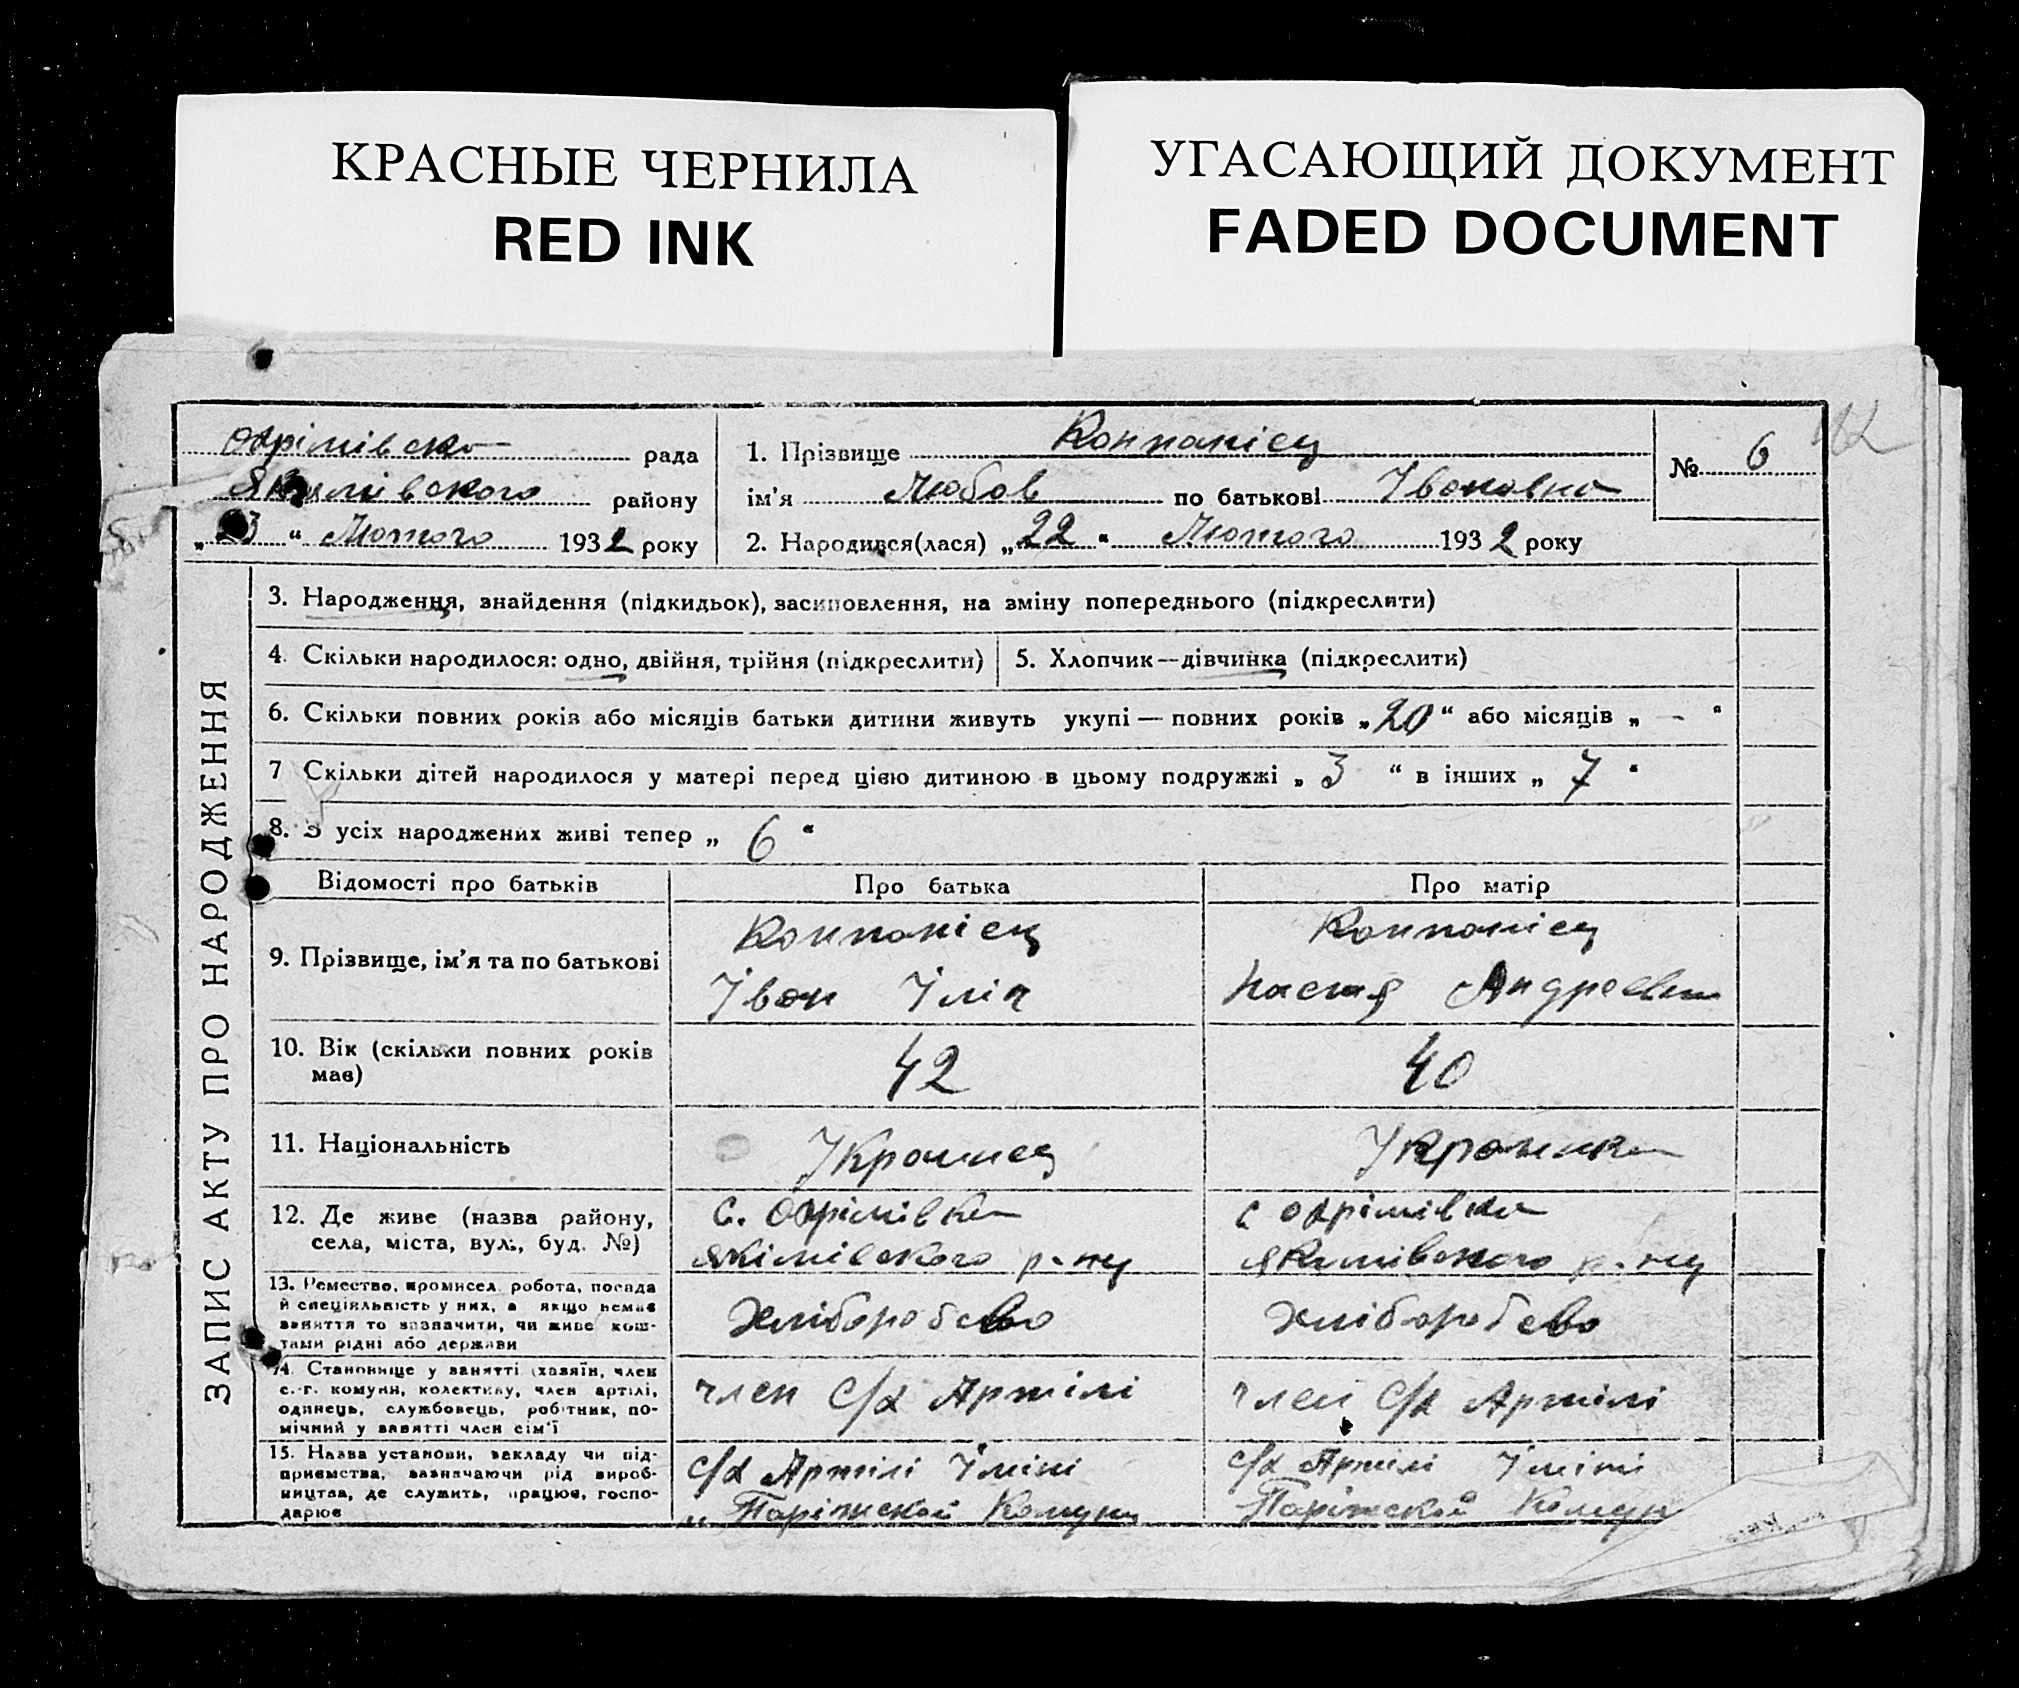 КРАСНЫЕ ЧЕРНИЛА
RED INK
УГАСАЮЩИЙ ДОКУМЕНТ
FADED DOCUMENT
Охрімівсько рада
Якимівського району
„23“ Лютого 1932 року
1. Прізвище Конпаніец
ім'я Любов по батькові Івановна
2. Народився(лася) „22“ Лютого 1932 року
№ 6
ЗАПИС АКТУ ПРО НАРОДЖЕННЯ
3. Народження, знайдення (підкидьок), засиновлення, на зміну попереднього (підкреслити)
4. Скільки народилося: одно, двійня, трійня (підкреслити)
5. Хлопчик—дівчинка (підкреслити)
6. Скільки повних років або місяців батьки дитини живуть укупі — повних років „20“ або місяців „ - “
7 Скільки дітей народилося у матері перед цією дитиною в цьому подружжі „ 3 “ в інших „ 7 “
8. З усіх народжених живі тепер „ 6 “
Відомості про батьків
Про батька
Про матір
9. Прізвище, ім'я та по батькові
Конпаніец
Іван Іліч
Конпаніец
Настя Андреевна
10. Вік (скільки повних років
має)
42
40
11. Національність
Украинец
Украинка
12. Де живе (назва району,
села, міста, вул., буд. №)
с. Охрімівка
Якімівского р-ну
с Охрімівка
Якимівского р-ну
13. Ремество, промисел, робота, посада
й спеціяльність у них, а якщо немає
заняття то зазначити, чи живе кош-
тами рідні або держави
Хліборобсво
Хліборобсво
14. Становище у занятті (хазяїн, член
с.-г. комуни, колективу, член артілі,
одинець, службовець, робітник, по-
мічний у занятті член сім'ї
член с/х Артілі
член с/х Артілі
15. Назва установи, закладу чи під-
приємства, зазначаючи рід вироб-
ництва, де служить, працює, госпо-
дарює
с/х Артілі Іміні
„ Паріжской Комуни
с/х Артілі Іміні
Паріжской Комун